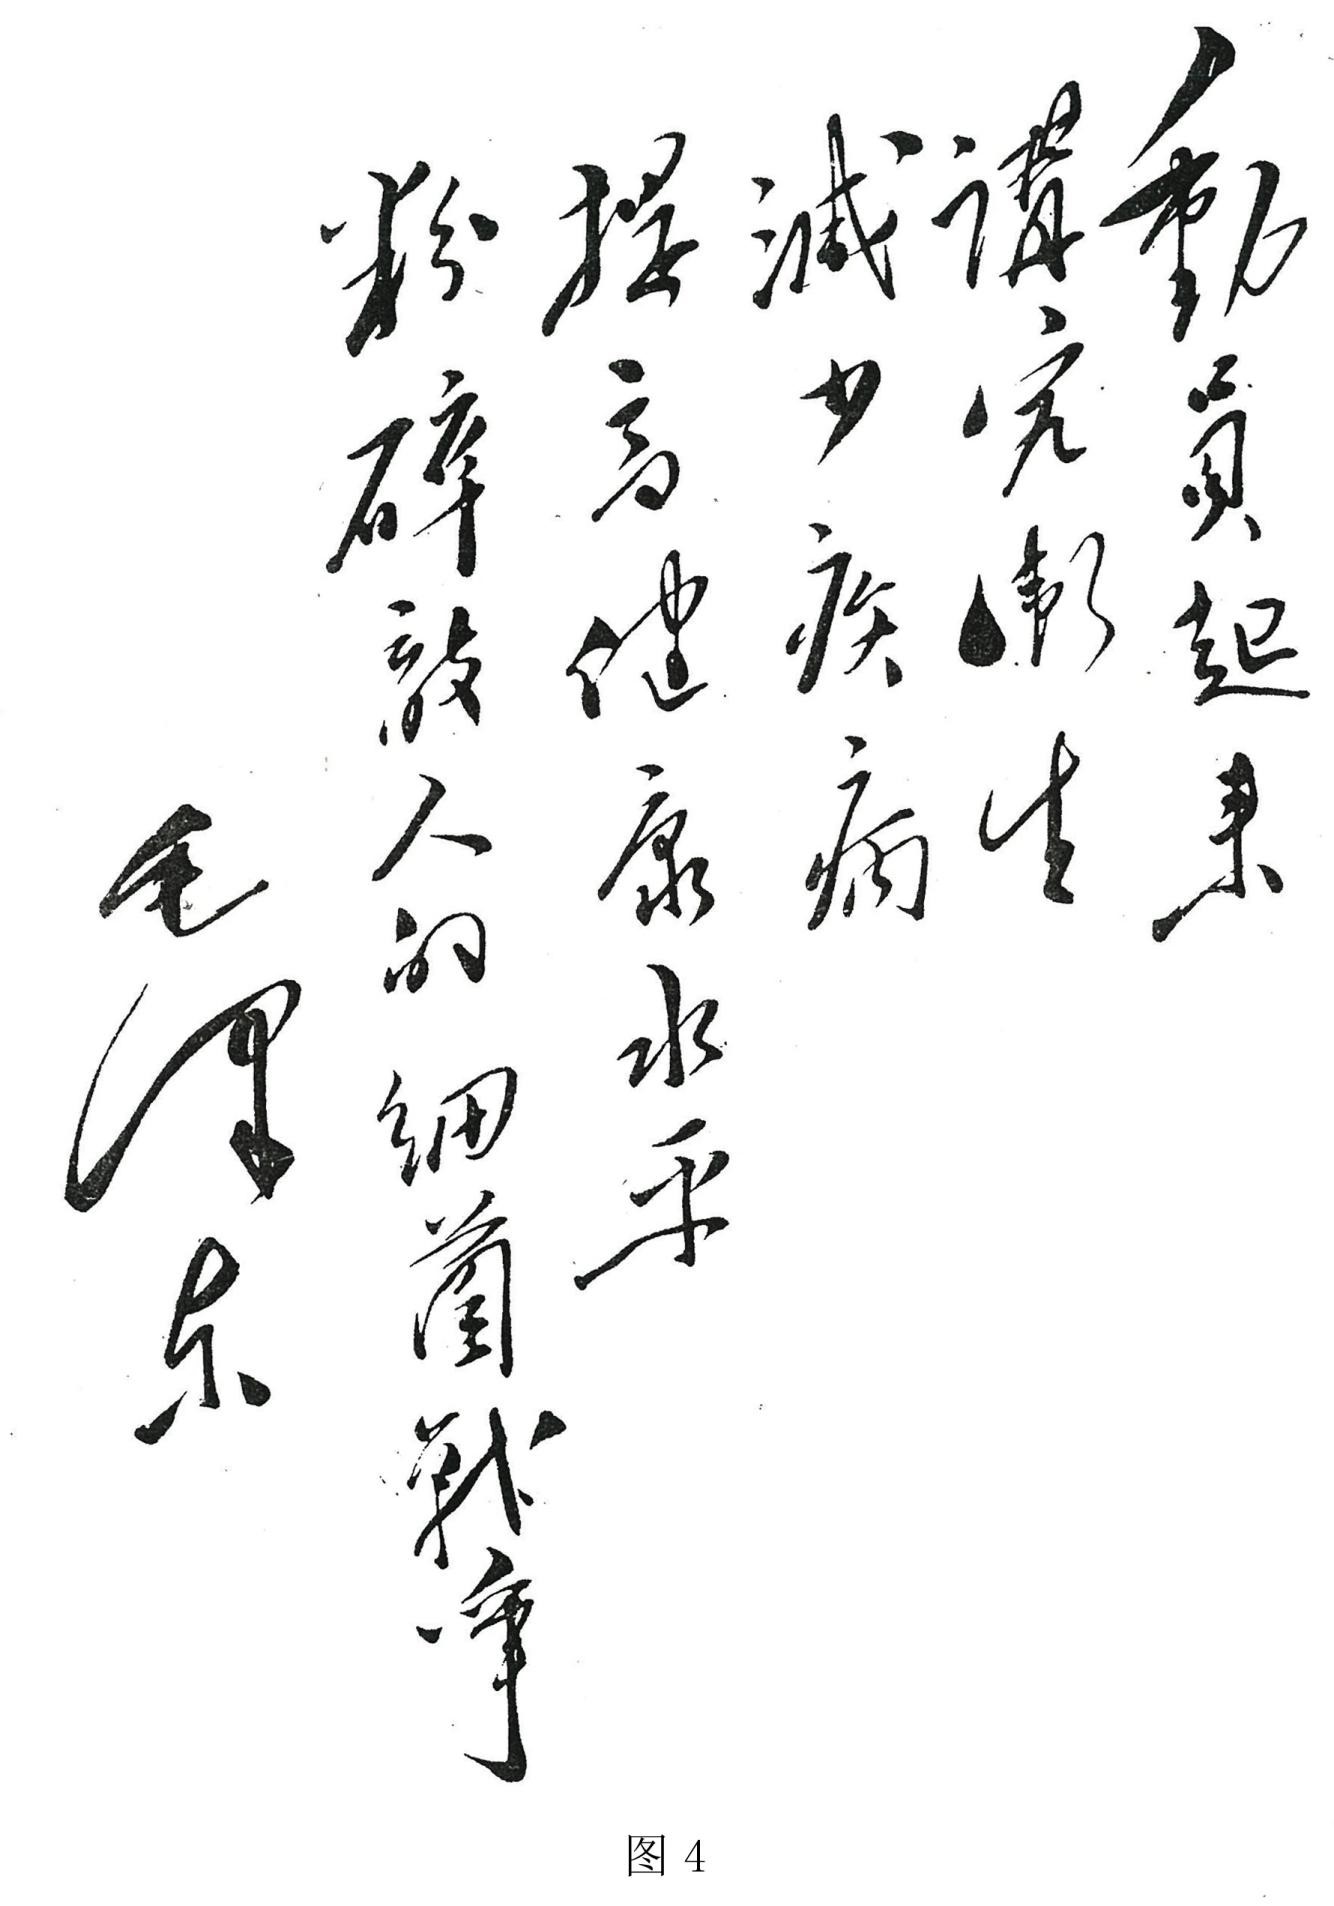 動員起来
講究衛生
減少疾病
提高健康水平
粉碎敵人的細菌戰爭
毛澤东
图 4